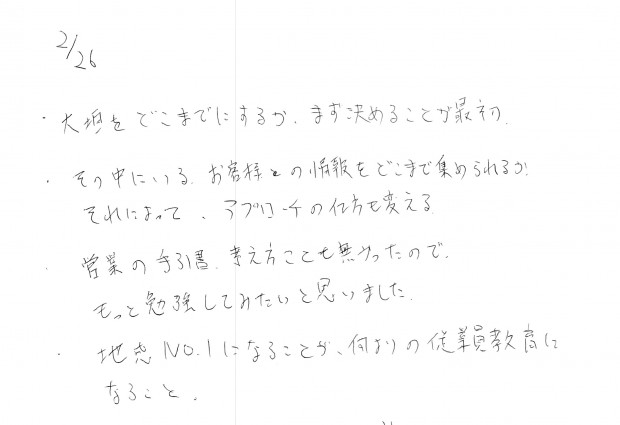 2/26
・大垣をどこまでにするか、まず決めることが最初。
・その中にいる、お客様との情報をどこまで集められるか!
それによって、アプローチの仕方も変える
・営業の手引書、考え方ことも無かったので、
もっと勉強してみたいと思いました。
・地域NO.1になることが、何よりの従業員教育に
なること。